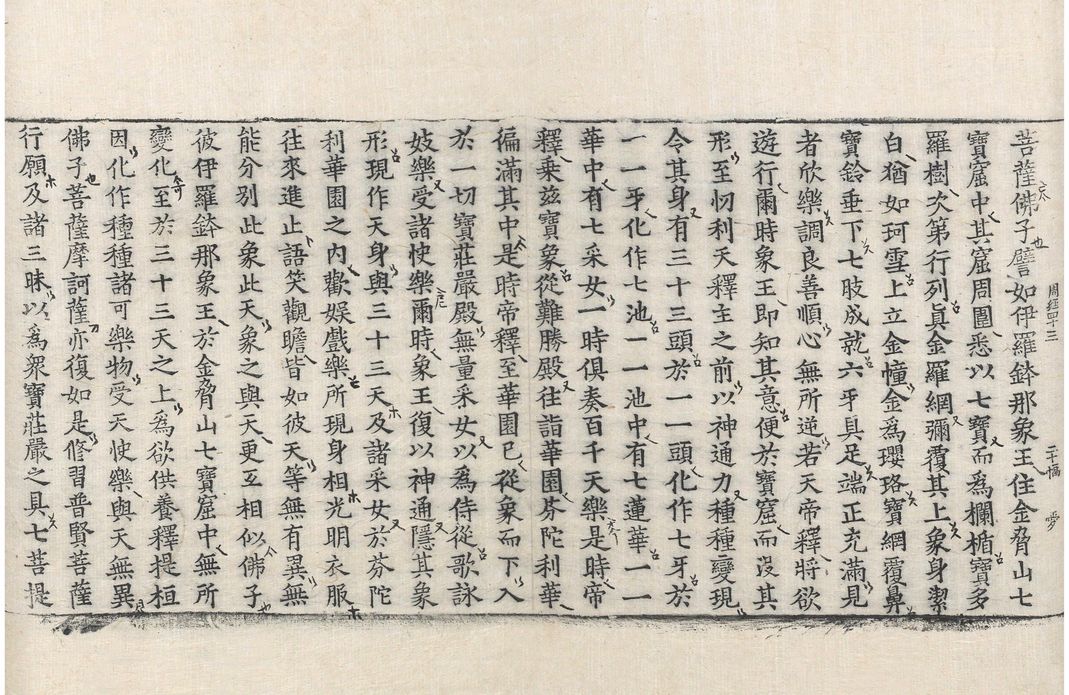 菩薩佛子譬如伊羅鉢那象王住金脅山七
寶窟中其窟周圍悉以七寶而為欄楯寶多
羅樹次第行列眞金羅網彌覆其上象身潔
白猶如珂雪上立金幢金為瓔珞寶網覆鼻
寶鈴垂下七肢成就六牙具足端正充滿見
者欣樂調良善順心無所逆若天帝釋將欲
遊行爾時象王即知其意便於寶窟而沒其
形至忉利天釋主之前以神通力種種變現
令其身有三十三頭於一一頭化作七牙於
一一牙化作七池一一池中有七蓮華一一
華中有七采女一時俱奏百千天樂是時帝
釋乘茲寶象從難勝殿往詣華園芬陀利華
徧滿其中是時帝釋至華園已從象而下入
於一切寶莊嚴殿無量采女以為侍從歌詠
妓樂受諸快樂爾時象王復以神通隱其象
形現作天身與三十三天及諸采女於芬陀
利華園之內歡娛戲樂所現身相光明衣服
往來進止語笑觀瞻皆如彼天等無有異無
能分別此象此天象之與天更互相似佛子
彼伊羅鉢那象王於金脅山七寶窟中無所
變化至於三十三天之上為欲供養釋提桓
因化作種種諸可樂物受天快樂與天無異
佛子菩薩摩訶薩亦復如是修習普賢菩薩
行願及諸三昧以為衆寶莊嚴之具七菩提
周經四十三
二十幅